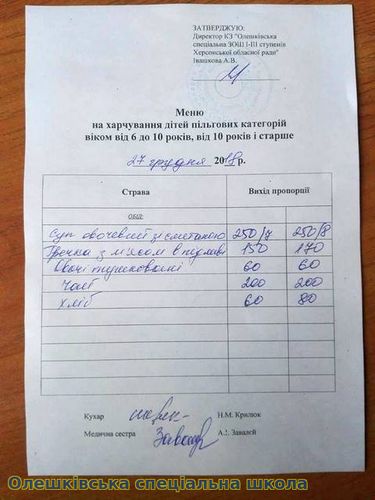 ЗАТВЕРДЖУЮ:
Директор КЗ "Олешківська
спеціальна ЗОШ І-ІІІ ступенів
Херсонської обласної ради"
Івашкова А.В.
Меню
на харчування дітей пільгових категорій
віком від 6 до 10 років, від 10 років і старше
27 грудня 2018р.
Страва Вихід пропорції
ОБІД:
Суп овочевий зі сметаною 250/7 250/8
Гречка з м'ясом в підливі 150 170
Овочі тушковані 60 60
Чай 200 200
Хліб 60 80
Кухар Н.М. Крилюк
Медична сестра А.І. Завалєй
Олешківська спеціальна школа